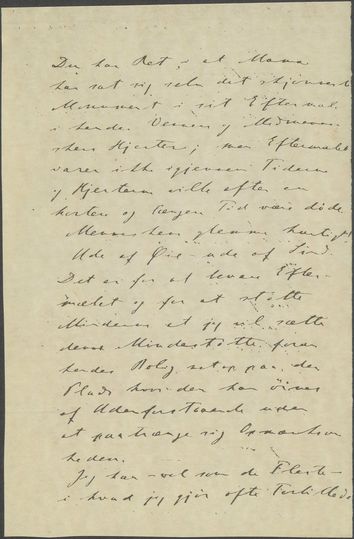 Du har Ret i at Mama
har sat sig selv det skjønneste
Monument i sit Eftermæle
i hendes Venner og Medmenne-
skers Hjerter; men Eftermælet
varer ikke igjennem Tiderne
og Hjerterne ville efter en
kortere og længere Tid være døde.
Menneskene glemme hurtigt!
Ude af Øie - ude af Sind.
Det er for at bevare Efter-
mælet og for at støtte
Minderne at jeg vil sætte
denne Mindestøtte foran
hendes Bolig, sat op paa den
Plads hvor den kan øines
af Udenforstaaende uden
at paatrænge sig Opmærksom
heden.
Jeg har - vel som de Fleste -
i hvad jeg gjør ofte